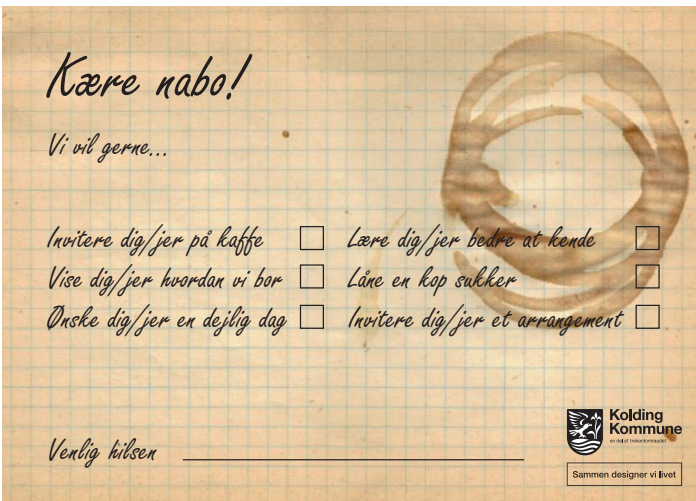 Kære nabo!
Vi vil gerne...
Invitere dig/jer på kaffe
Vise dig/jer hvordan vi bor
Ønske dig/jer en dejlig dag
Lære dig/jer bedre at kende
Låne en kop sukker
Invitere dig/jer et arrangement
Venlig hilsen
Kolding
Kommune
en del af trekantområdet
Sammen designer vi livet